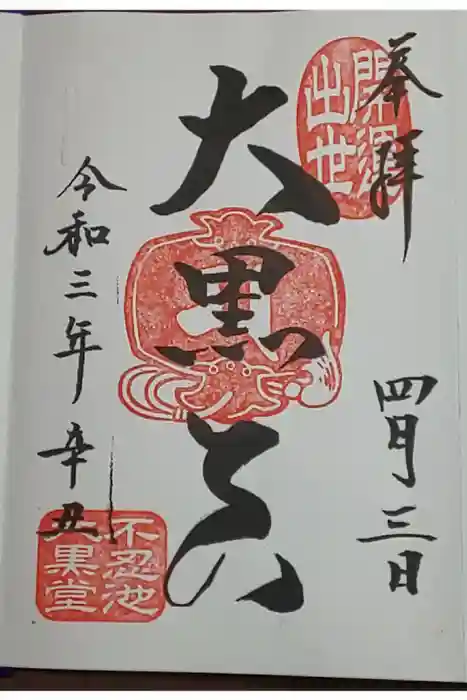 奉拝
四月三日
開運
出世
大黒天
令和三年辛丑
不忍池
大黒堂